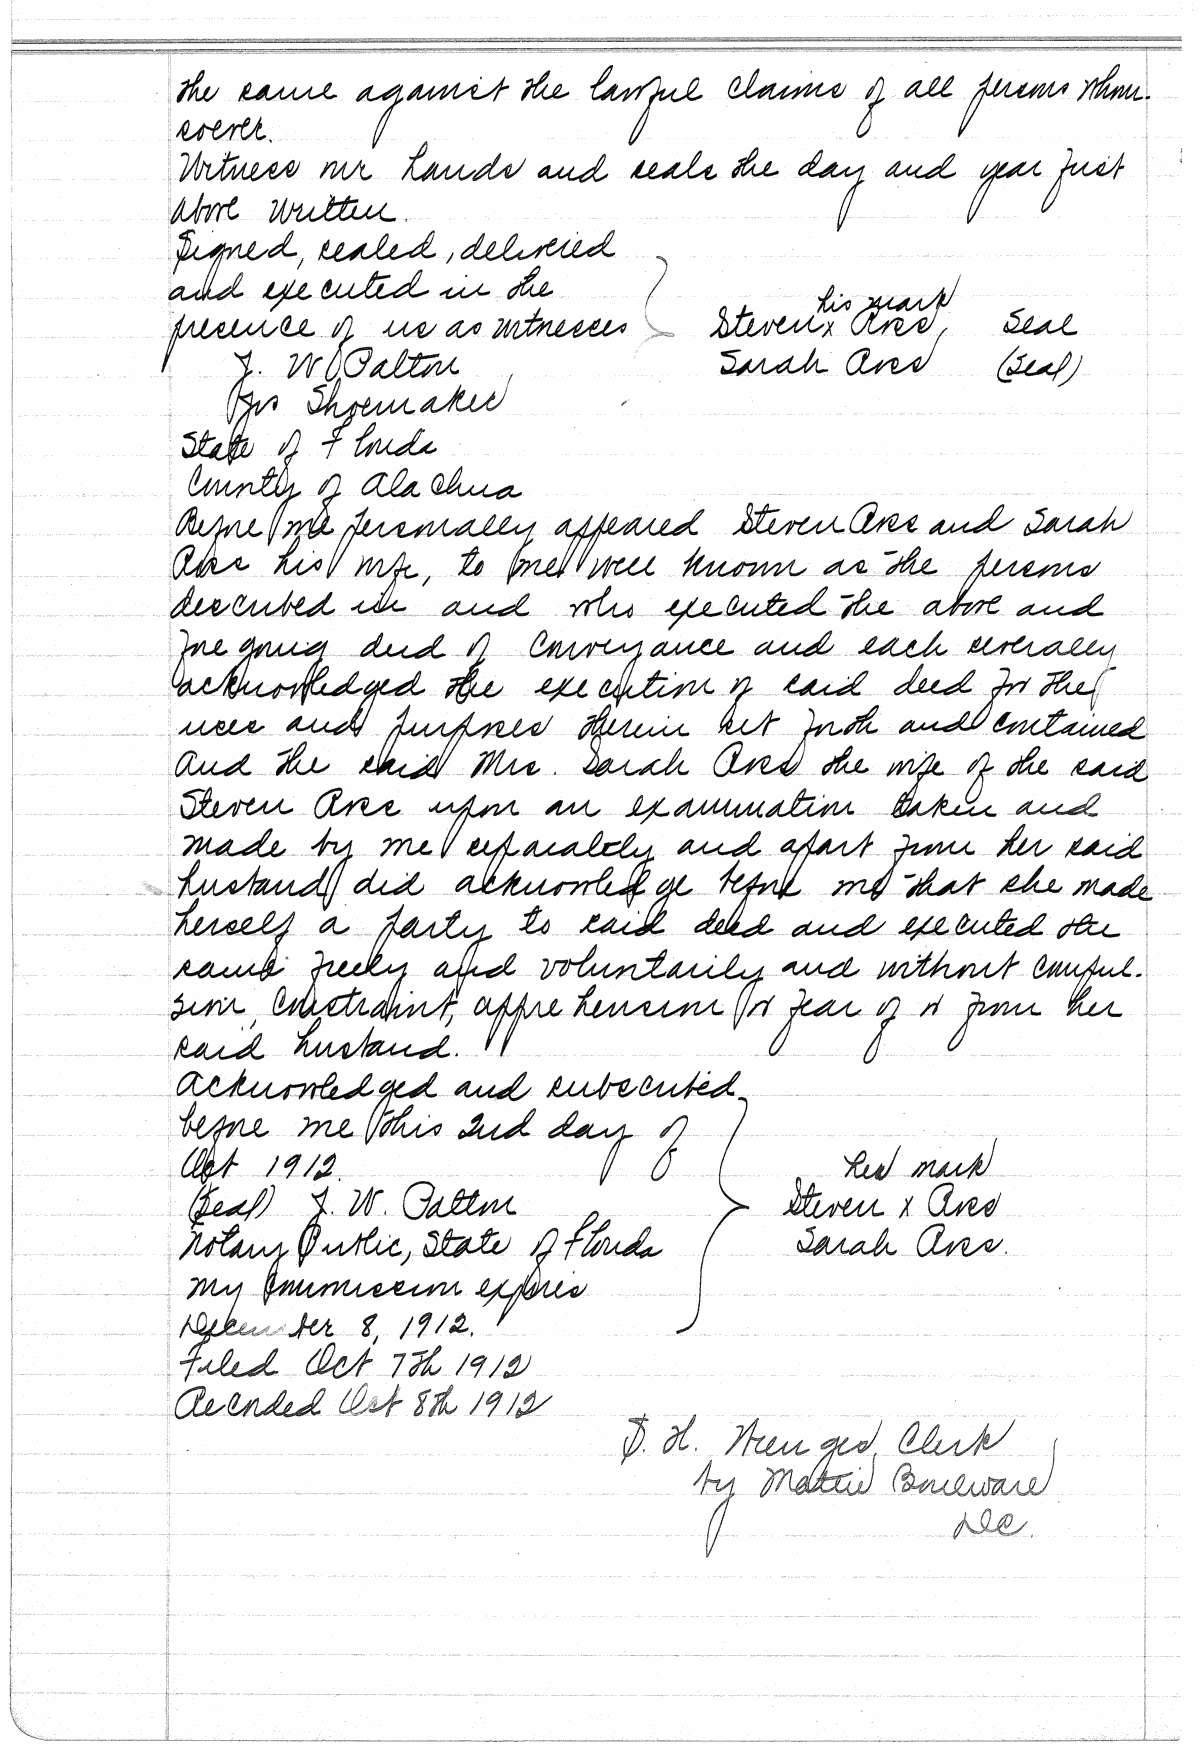 the same against the lawful claims of all persons whom-
soever.
Witness our hands and seals the day and year first
above written.
Signed, sealed, delivered
and executed in the
presence of us as witnesses
his mark
Steven x Ares, Seal
J. W. Patton
Sarah Ares (Seal)
Jos Shoemaker
State of Florida
County of Alachua
Before me personally appeared Steven Ares and Sarah
Ares his wife, to me well known as the persons
described in and who executed the above and
foregoing deed of conveyance and each severally
acknowledged the execution of said deed for the
uses and purposes therein set forth and contained
And the said Mrs. Sarah Ares the wife of the said
Steven Ares upon an examination taken and
made by me separately and apart from her said
husband did acknowledge before me that she made
herself a party to said deed and executed the
same freely and voluntarily and without compul-
sion, constraint, apprehension or fear of or from her
said husband.
Acknowledged and subscribed
before me this 2nd day of
Oct 1912.
her mark
(Seal) J. W. Patton
Steven x Ares
Notary Public, State of Florida
Sarah Ares.
My commission expires
December 8, 1912.
Filed Oct 7th 1912
Recorded Oct 8th 1912
S. H. Wienges, Clerk
by Mattie Bouleware
D.C.